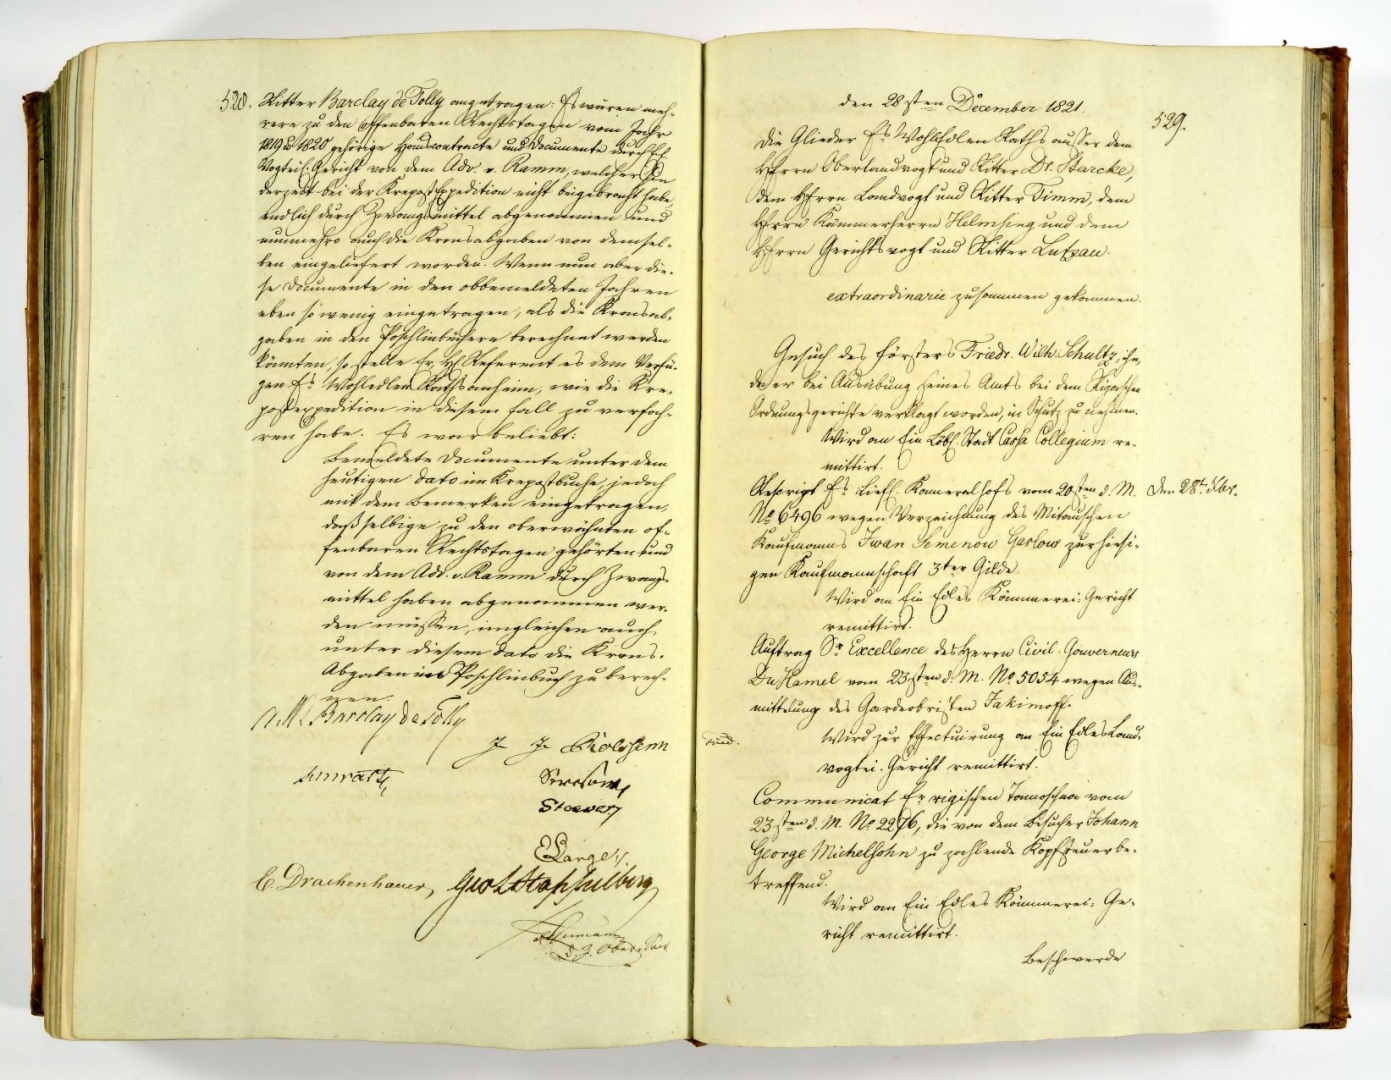 528.
Ritter Barclay de Tolly angetragen: Es wären meh-
rere zu den offenbaren Rechtstagen vom Jahr
1819 u 1820 gehörige Hauscontracte und Documente durch Ein
Vogteil. Gericht von dem Adv. v. Ramm, welcher sie
derzeit bei der Krepost Expedition nicht beigebracht habe,
endlich durch Zwangsmittel abgenommen und
nunmehro auch die Kronsabgaben von demsel-
ben eingeliefert worden. Wenn nun aber die-
se Documente in den obbemeldeten Jahren
eben so wenig eingetragen, als die Kronsab-
gaben in den Poschlinbüchern berechnet werden
könnten, so stelle Er, H. Referent es dem Verfü-
gen Es Wohledlen Raths anheim, wie die Kre-
postexpedition in diesem Fall zu verfah-
ren habe. Es war beliebt:
Bemeldete Documente unter dem
heutigen Dato im Krepostbuche, jedoch
mit dem Bemerken eingetragen,
daß selbige zu den oberwähnten of-
fenbaren Rechtstagen gehörten und
von dem Adv. v. Ramm durch Zwangs-
mittel haben abgenommen wer-
den müssen, imgleichen auch
unter diesem Dato die Krons-
Abgaben ins Poschlinbuch zu berech-
nen.
Barclay de Tolly
J. J. Rolssenn
Schwartz
Stoever
Lange
C. Drachenhauer,
529.
den 28sten December 1821.
Die Glieder Es Wohledlen Raths außer dem
Herrn Oberlandvogt und Ritter Dr. Starcke,
dem Herrn Landvogt und Ritter Timm, dem
Herrn Kämmerherrn Helmsing und dem
Herrn Gerichtsvogt und Ritter Lutzau.
extraordinarie zusammen gekommen.
Gesuch des Försters Friedr. Wilh. Schultz, ihn,
da er bei Ausübung seines Amts bei dem Rigaschen
Ordnungsgerichte verklagt worden, in Schutz zu nehmen.
Wird an Ein Löbl. Stadt Cassa Collegium re-
mittirt.
Rescript Es Liefl. Kameralhofs vom 20sten d. M.
No 6496 wegen Verzeichnung des Mitauschen
Kaufmanns Iwan Semenow Garlow zur hiesi-
gen Kaufmannschaft 3ter Gilde.
Den 28t
Wird an Ein Edles Kämmerei-Gericht
remittirt.
Auftrag Sr Excellence des Herrn Civil-Gouverneurs
Du Hamel vom 23sten d. M. No 5054 wegen Aus-
mittelung des Gardeobristen Jakimoff.
Wird zur Effectuirung an Ein Edles Land-
vogtei-Gericht remittirt.
Communicat Er rigischen Tamoschna vom
23sten d. M. No 2276, die von dem Besucher Johann
George Michelsohn zu zahlende Kopfsteuer be-
treffend.
Wird an Ein Edles Kämmerei-Ge-
richt remittirt.
Beschwerde